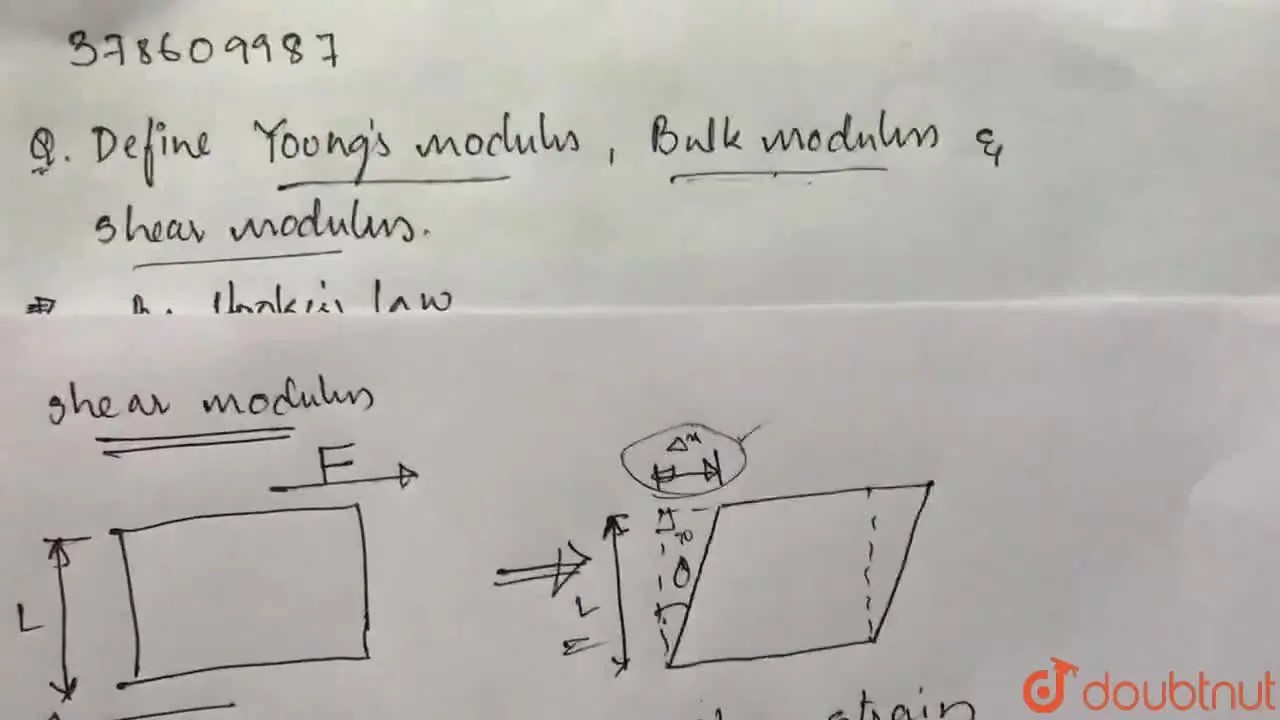 378609987
Q. Define Young's modulus, Bulk modulus &
shear modulus.
law
shear modulus
F
Δx
L
θ
L
strain
doubtnut